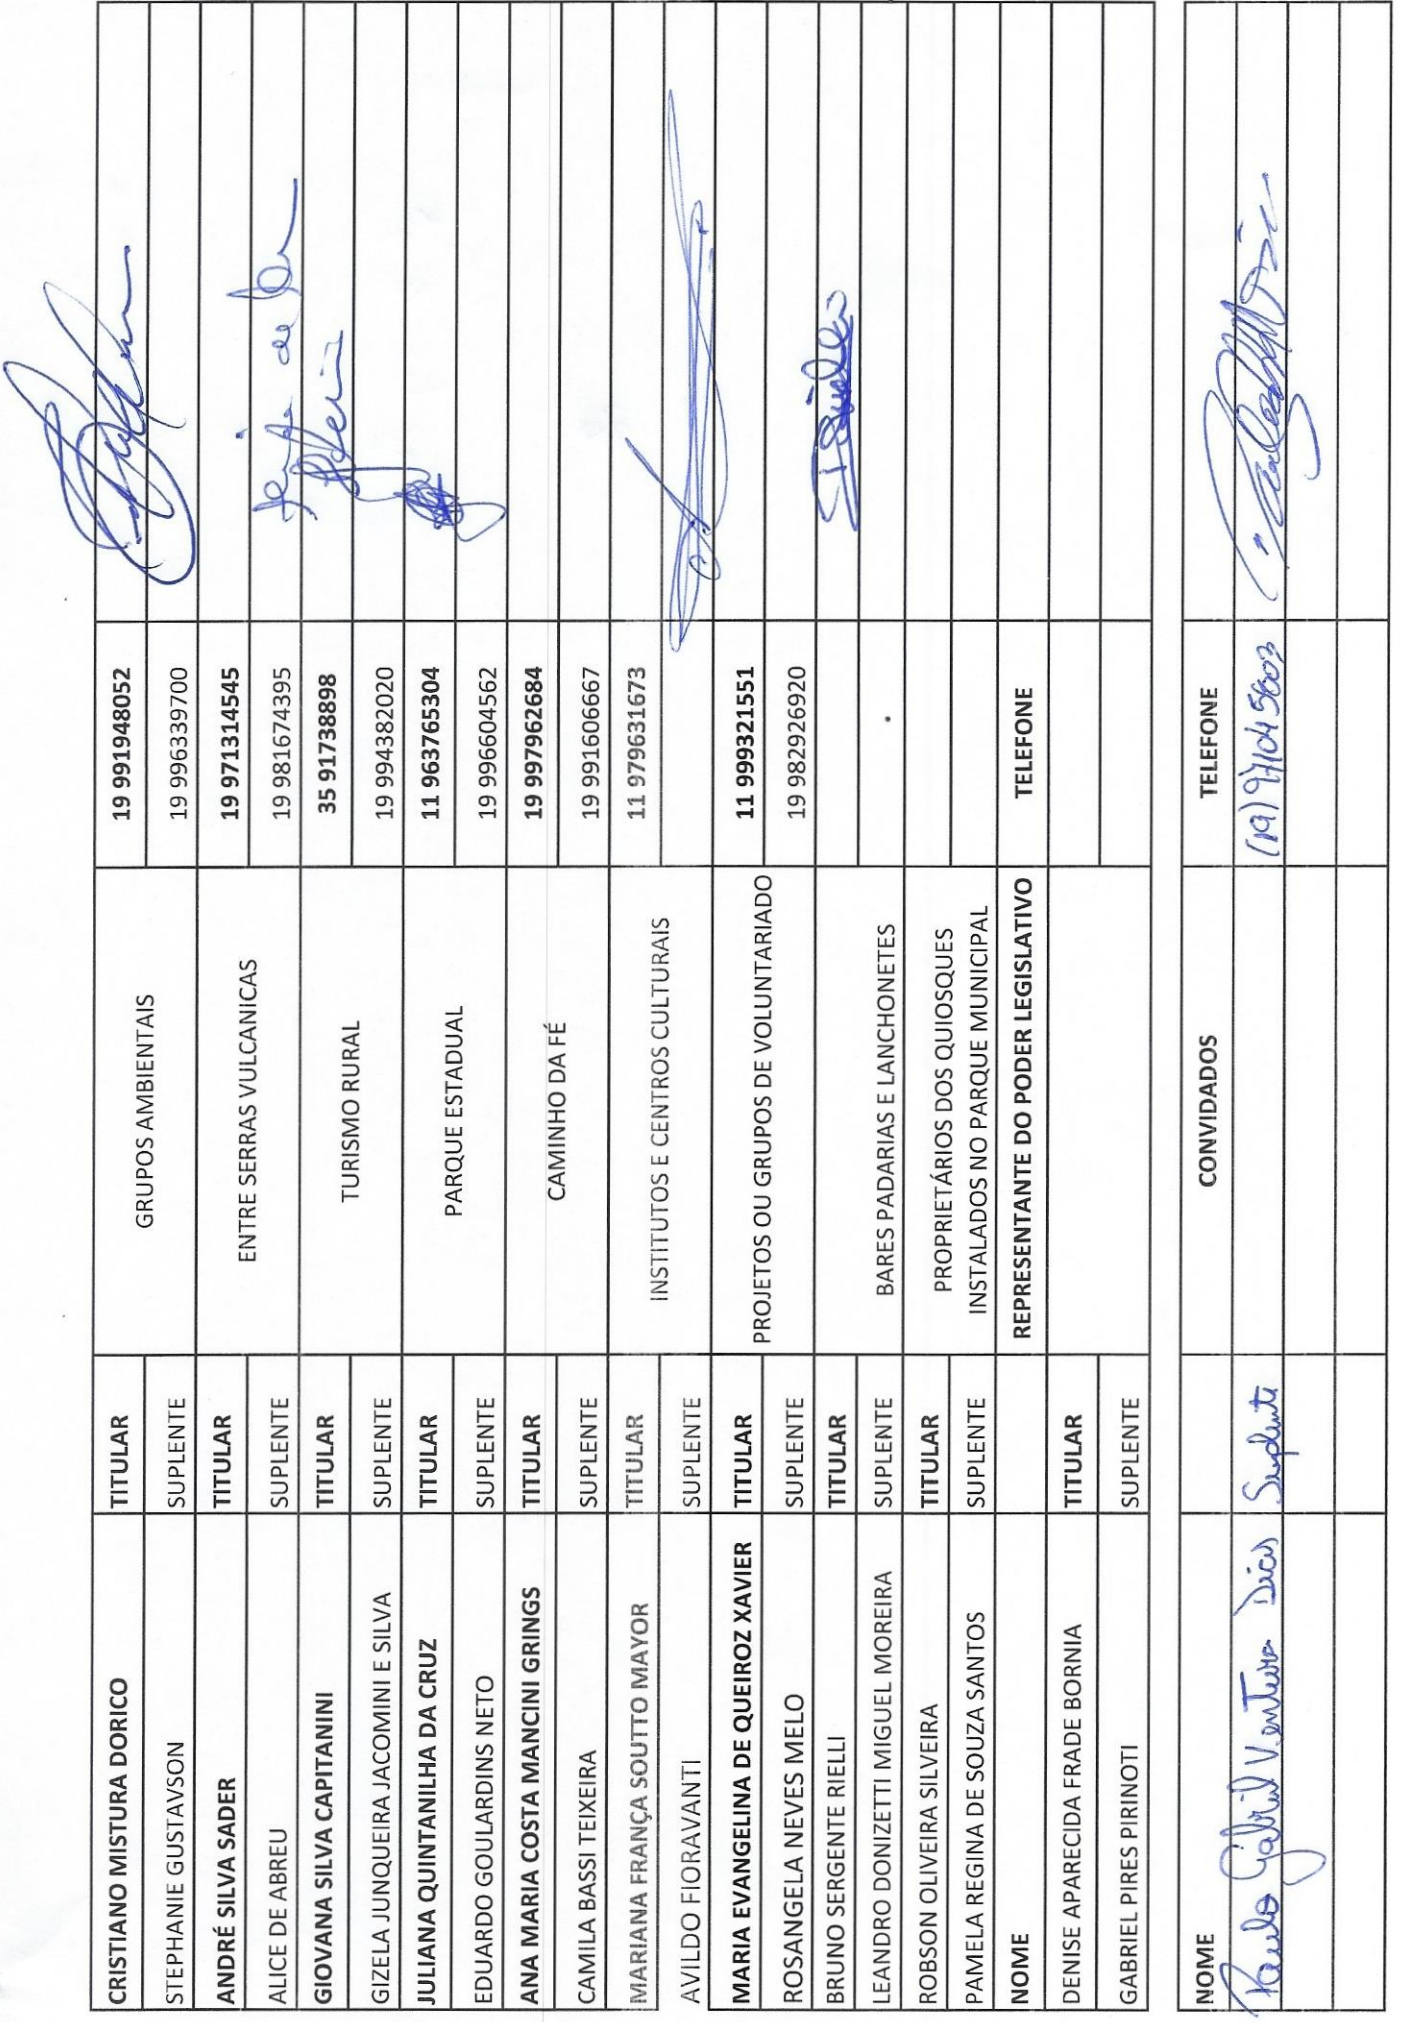 CRISTIANO MISTURA DORICO TITULAR GRUPOS AMBIENTAIS 19 991948052
STEPHANIE GUSTAVSON SUPLENTE 19 996339700
ANDRÉ SILVA SADER TITULAR ENTRE SERRAS VULCANICAS 19 971314545
ALICE DE ABREU SUPLENTE 19 981674395
GIOVANA SILVA CAPITANINI TITULAR TURISMO RURAL 35 91738898
GIZELA JUNQUEIRA JACOMINI E SILVA SUPLENTE 19 994382020
JULIANA QUINTANILHA DA CRUZ TITULAR PARQUE ESTADUAL 11 963765304
EDUARDO GOULARDINS NETO SUPLENTE 19 996604562
ANA MARIA COSTA MANCINI GRINGS TITULAR CAMINHO DA FÉ 19 997962684
CAMILA BASSI TEIXEIRA SUPLENTE 19 991606667
MARIANA FRANÇA SOUTTO MAYOR TITULAR INSTITUTOS E CENTROS CULTURAIS 11 979631673
AVILDO FIORAVANTI SUPLENTE
MARIA EVANGELINA DE QUEIROZ XAVIER TITULAR PROJETOS OU GRUPOS DE VOLUNTARIADO 11 999321551
ROSANGELA NEVES MELO SUPLENTE 19 982926920
BRUNO SERGENTE RIELLI TITULAR
LEANDRO DONIZETTI MIGUEL MOREIRA SUPLENTE BARES PADARIAS E LANCHONETES
ROBSON OLIVEIRA SILVEIRA TITULAR PROPRIETÁRIOS DOS QUIOSQUES
PAMELA REGINA DE SOUZA SANTOS SUPLENTE INSTALADOS NO PARQUE MUNICIPAL
NOME REPRESENTANTE DO PODER LEGISLATIVO TELEFONE
DENISE APARECIDA FRADE BORNIA TITULAR
GABRIEL PIRES PIRINOTI SUPLENTE
NOME CONVIDADOS TELEFONE
Paulo Gabriel Ventura Dias Suplente (19)